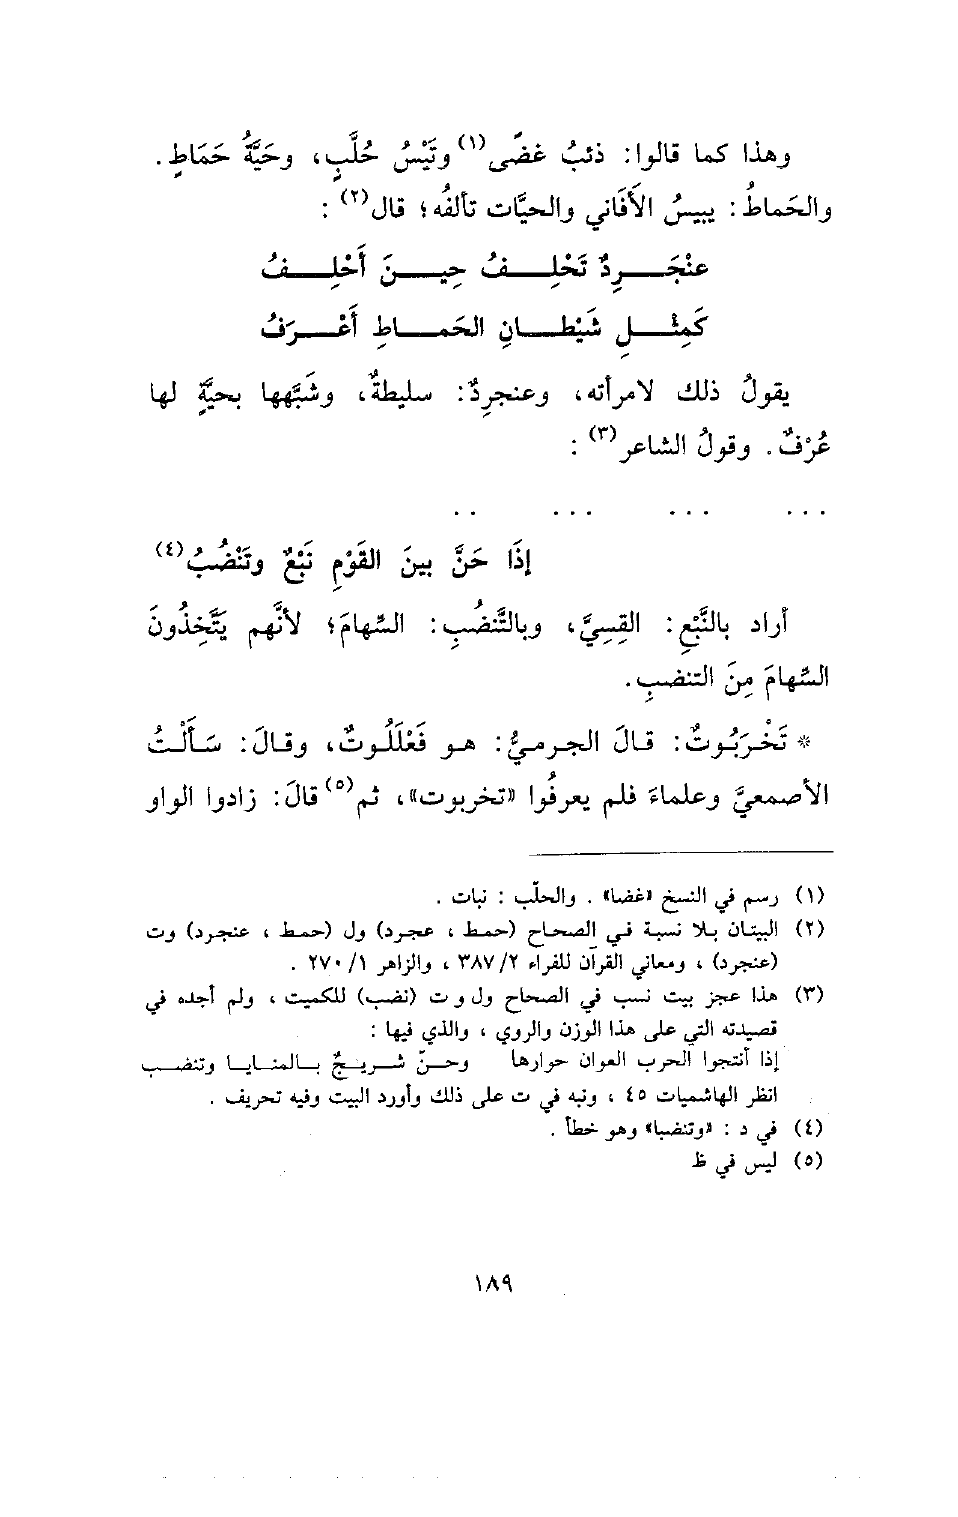 وهذا كما قالوا: ذئبُ غضًى(١) وتَيْسُ حُلَّبٍ، وحَيَّةُ حَمَاطٍ.
والحَماطُ: يبيسُ الأَفَاني والحيَّات تألفُه؛ قال(٢):
عنْجَـــرِدٌ تَحْلِـــفُ حِيـــنَ أَحْلِـــفُ
كَمِثْـــلِ شَيْطـــانِ الحَمـــاطِ أَعْـــرَفُ
يقولُ ذلك لامرأته، وعنجرِدٌ: سليطةٌ، وشَبَّهها بحيَّةٍ لها
عُرْفٌ. وقولُ الشاعر(٣):
... ... ... ..
إذَا حَنَّ بينَ القَوْمِ نَبْعٌ وتَنْضُبُ(٤)
أراد بالنَّبْعِ: القِسِيَّ، وبالتَّنضُبِ: السِّهامَ؛ لأنَّهم يَتَّخِذُونَ
السِّهامَ مِنَ التنضبِ.
* تَخْرَبُوتٌ: قالَ الجرميُّ: هو فَعْلَلُوتٌ، وقالَ: سَأَلْتُ
الأصمعيَّ وعلماءَ فلم يعرفُوا «تخربوت»، ثم(٥) قالَ: زادوا الواو
(١) رسم في النسخ «غضا» . والحلّب : نبات .
(٢) البيتان بلا نسبة في الصحاح (حمط ، عجرد) ول (حمط ، عنجرد) وت
(عنجرد) ، ومعاني القرآن للفراء ٣٨٧/٢ ، والزاهر ٢٧٠/١ .
(٣) هذا عجز بيت نسب في الصحاح ول و ت (نضب) للكميت ، ولم أجده في
قصيدته التي على هذا الوزن والروي ، والذي فيها :
إذا أنتجوا الحرب العوان حوارها وحـنّ شـريـجٌ بـالمنـايـا وتنضـب
انظر الهاشميات ٤٥ ، ونبه في ت على ذلك وأورد البيت وفيه تحريف .
(٤) في د : «وتنضبا» وهو خطأ .
(٥) ليس في ظ
١٨٩